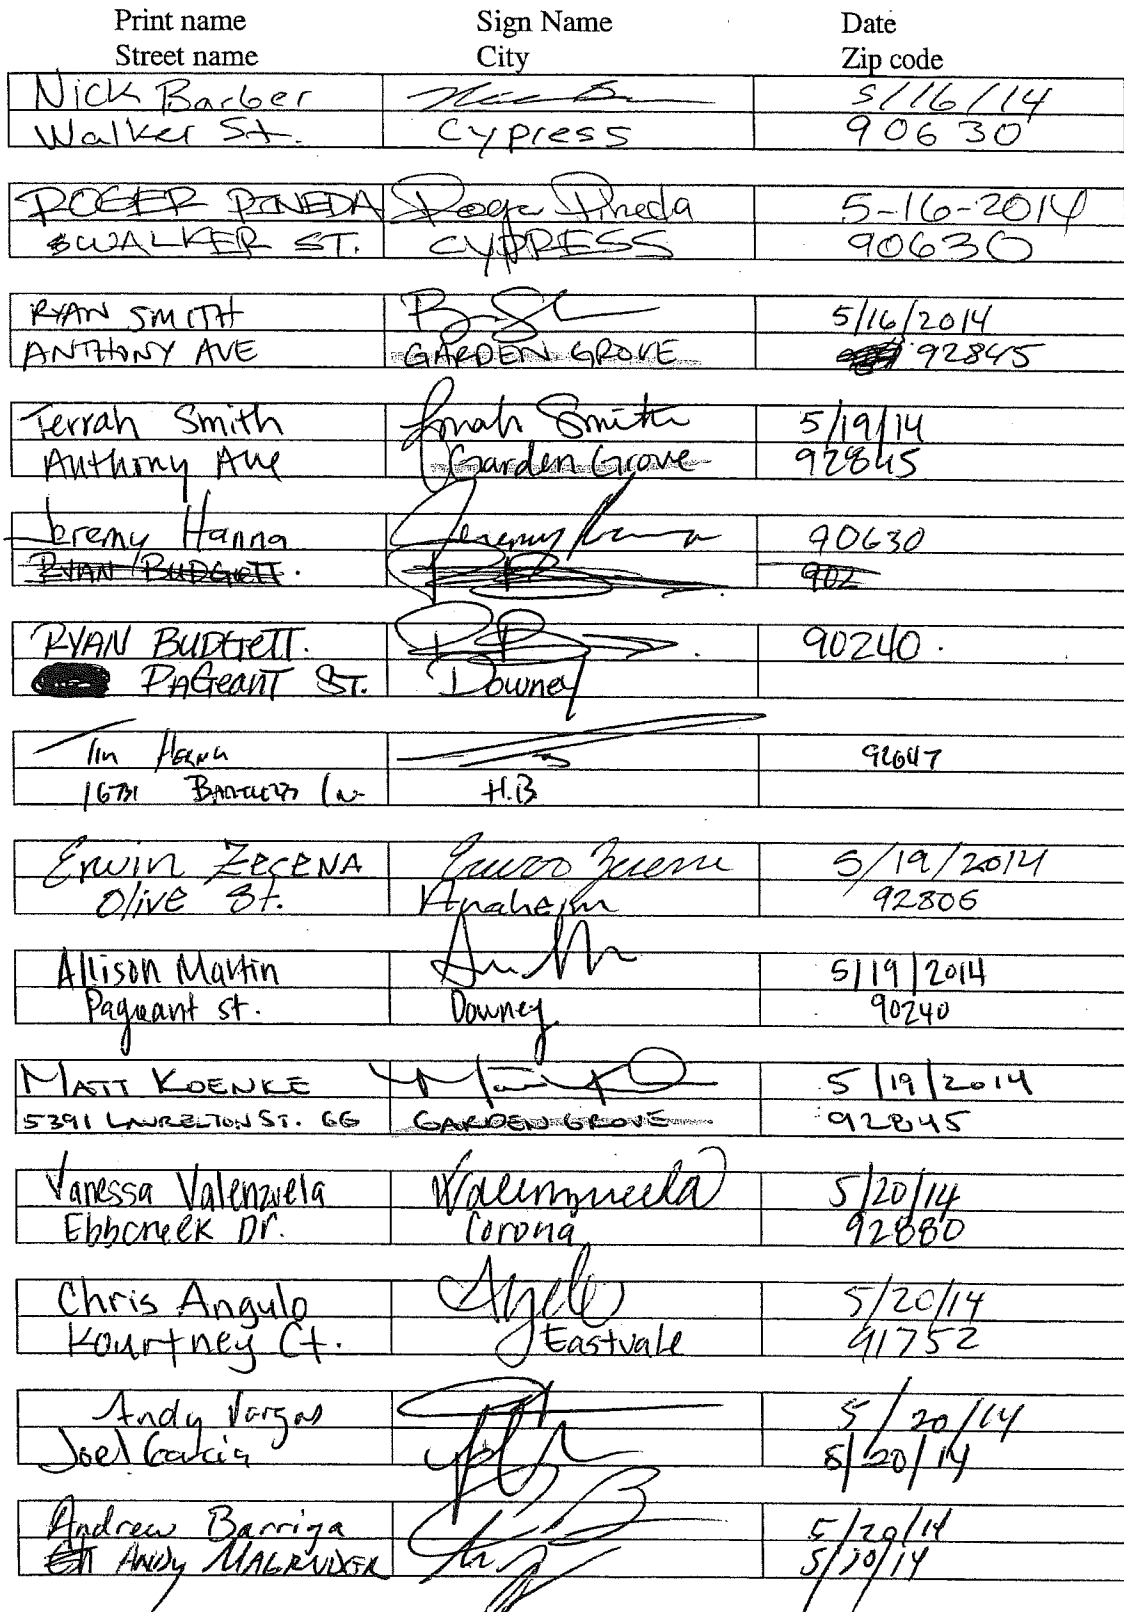 Print name Sign Name Date
Street name City Zip code
Nick Barber 5/16/14
Walker St. Cypress 90630
ROGER PINEDA Roger Pineda 5-16-2014
WALKER ST. CYPRESS 90630
RYAN SMITH 5/16/2014
ANTHONY AVE GARDEN GROVE 92845
Terrah Smith Smith 5/19/14
Anthony Ave Garden Grove 92845
Jeremy Hanna Jeremy 90630
RYAN BUDGETT. 902
RYAN BUDGETT. 90240.
PAGEANT ST. Downey
Tim 92647
H.B
Erwin ZECENA 5/19/2014
Olive St. Anaheim 92806
Allison Martin 5/19/2014
Pageant st. Downey 90240
MATT KOENKE 5/19/2014
5391 LAURELTON ST. GG GARDEN GROVE 92845
Vanessa Valenzuela Valenzuela 5/20/14
Ebbcreek Dr. Corona 92880
Chris Angulo 5/20/14
Kourtney Ct. Eastvale 91752
Andy Vargas 5/20/14
Joel Garcia 5/20/14
Andrew Barriga 5/20/14
ANDY MAGRUDER 5/20/14